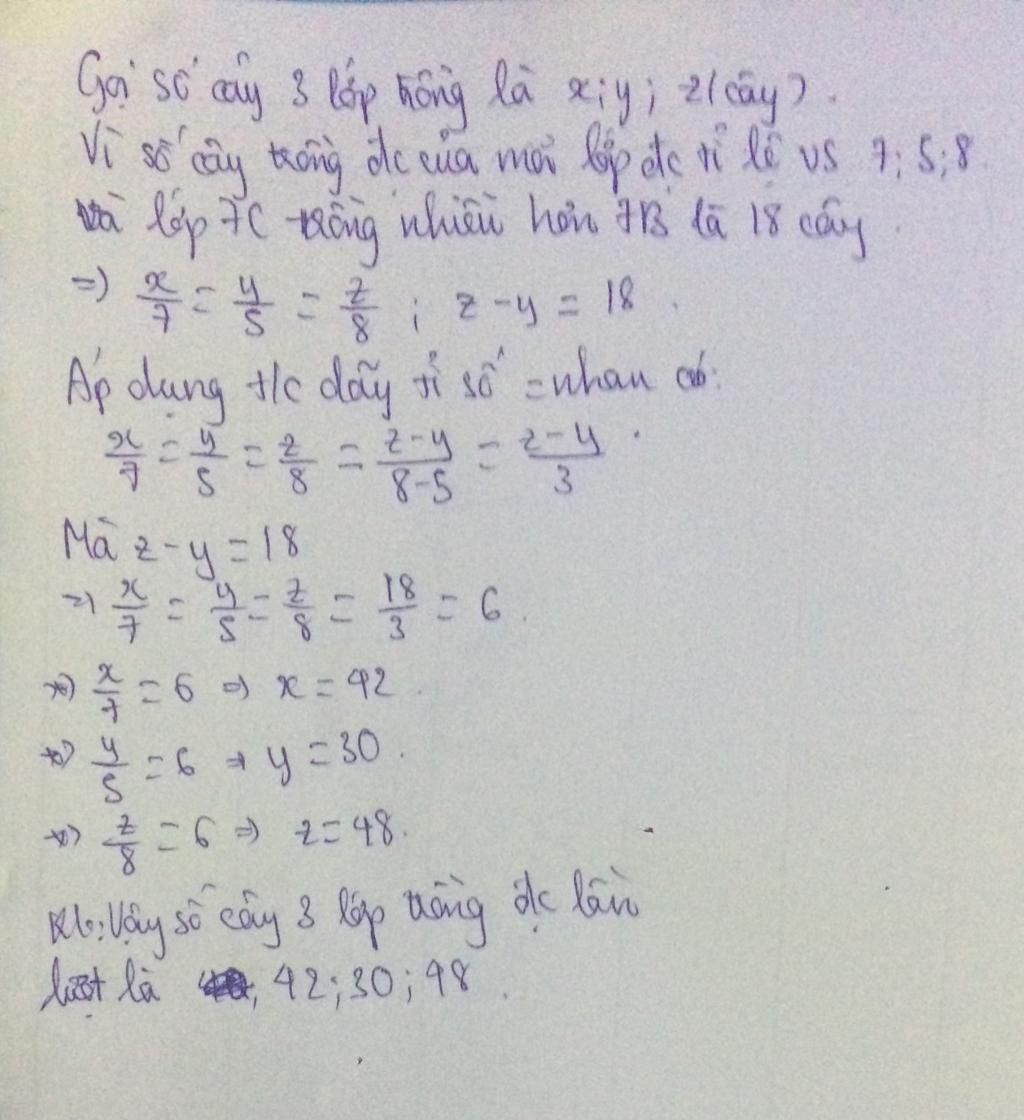 Gọi số cây 3 lớp trồng là x; y; z (cây).
Vì số cây trồng đc của mỗi lớp đc tỉ lệ vs 7; 5; 8
và lớp 7C trồng nhiều hơn 7B là 18 cây.
=> x/7 = y/5 = z/8 ; z - y = 18.
Áp dụng t/c dãy tỉ số = nhau có:
x/7 = y/5 = z/8 = (z-y)/(8-5) = (z-y)/3.
Mà z - y = 18
=> x/7 = y/5 = z/8 = 18/3 = 6.
*) x/7 = 6 => x = 42.
*) y/5 = 6 => y = 30.
*) z/8 = 6 => z = 48.
KL: Vậy số cây 3 lớp trồng đc lần
lượt là 42; 30; 48.